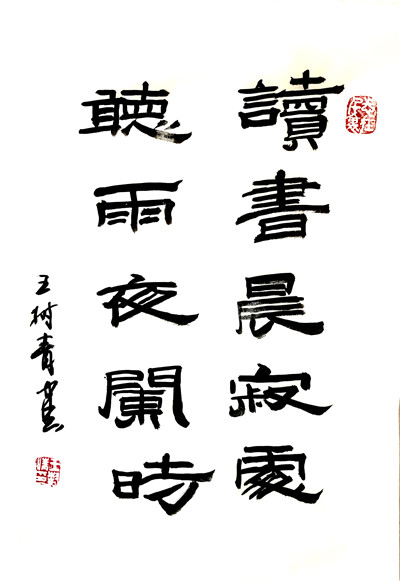 讀書晨寂處
聽雨夜闌時
王树青書